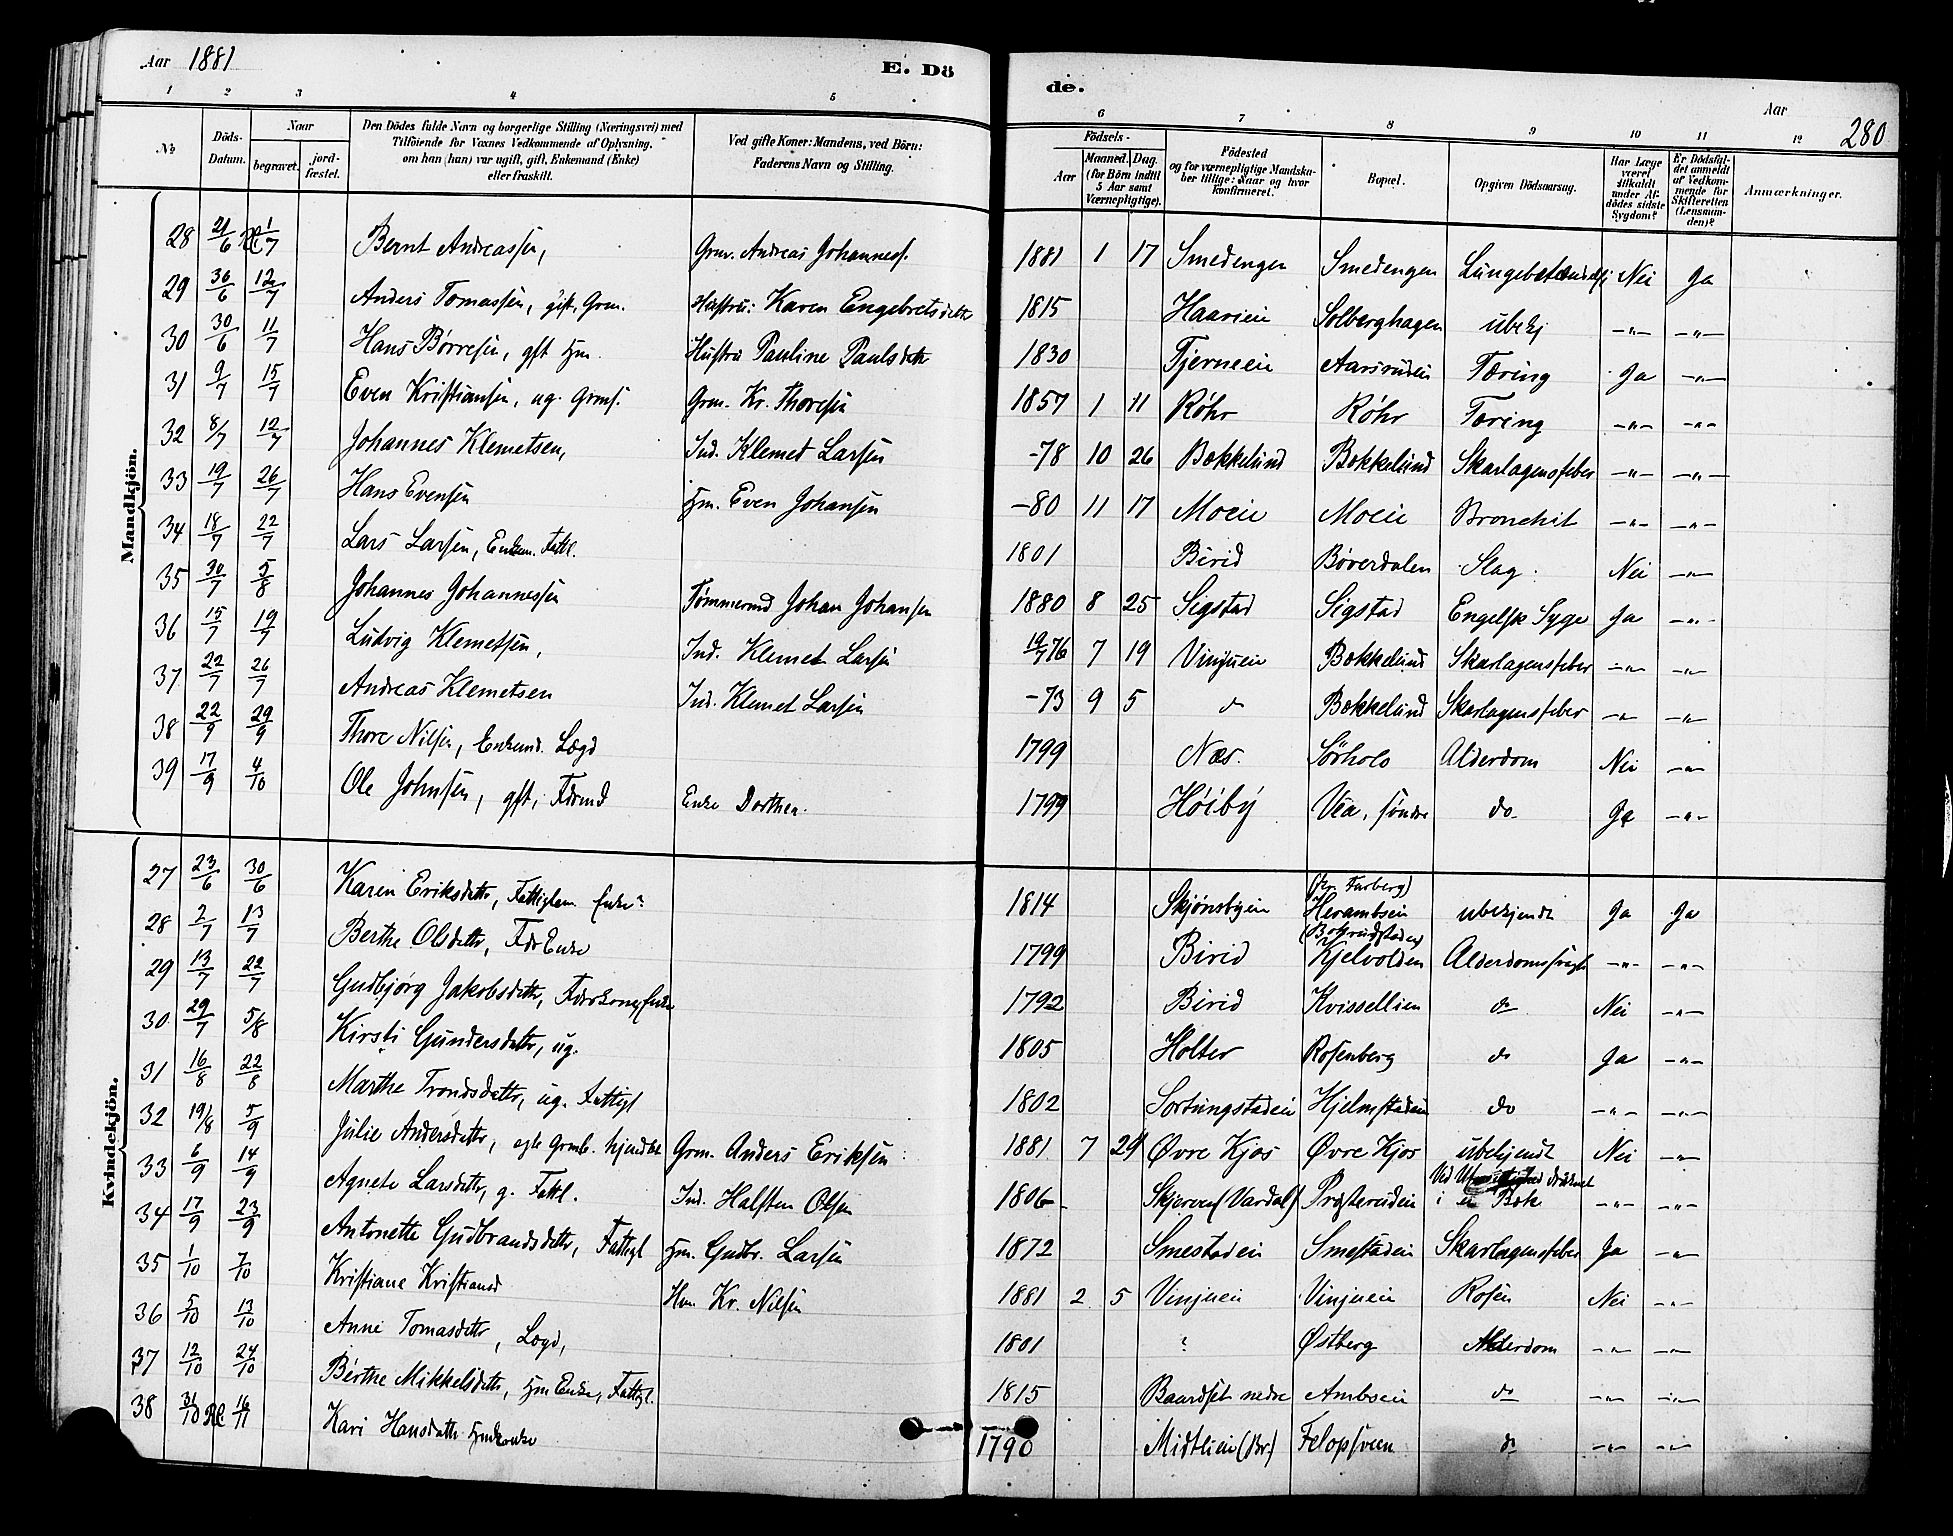 Aar 1881
E. Dö
de.
Aar
280
1 2 3 4 5
6 7 8 9 10 11 12
No
Döds-Datum.
Naar
begravet.
jord-fæstet.
Den Dödes fulde Navn og borgerlige Stilling (Næringsvei) med
Tilföiende for Voxnes Vedkommende af Oplysning,
om han (hun) var ugift, gift, Enkemand (Enke)
eller fraskilt.
Ved gifte Koner: Mandens, ved Börn:
Faderens Navn og Stilling.
Födsels-
Aar
Maaned.
Dag.
(for Börn indtil
5 Aar samt
Værnepligtige).
Födested
og for værnepligtige Mandskaber tillige: Naar og hvor
konfirmeret.
Bopæl.
Opgiven Dödsaarsag.
Har Læge været tilkaldt under Afdödes sidste Sygdom?
Er Dödsfaldet anmeldt af Vedkommende for Skifteretten (Lensmanden)?
Anmærkninger.
Mandkjön.
28 21/6 1/7 Bernt Andreassen, Grm. Andreas Johanness. 1881 1 17 Smedengen Smedengen Nei Ja
29 30/6 12/7 Anders Tomassen, gift. Grm. Hustru: Karen Engebretsdatter 1815 Haarieie Solberghagen ubekj -"- -"-
30 30/6 11/7 Hans Børresen, gft Hm. Hustru Pauline Paulsdtr 1830 Tjerneeie Tæring Ja -"-
31 9/7 15/7 Even Kristiansen, ug. Grms. Grm. Kr. Thoresen 1857 1 11 Røhr Røhr Tæring -"- -"-
32 8/7 12/7 Johannes Klemetsen, Ind. Klemet Larsen -78 10 26 Bækkelund Bækkelund Skarlagensfeber -"- -"-
33 19/7 26/7 Hans Evensen Hm. Even Johansen -80 11 17 Moeie Moeie Bronchit -"- -"-
34 18/7 22/7 Lars Larsen, Enkem. Fattl. 1801 Birid Bøverdalen Slag. Nei -"-
35 30/7 5/8 Johannes Johannessen Tømmermd Johan Johansen 1880 8 25 Sigstad Sigstad Engelsk Syge Ja -"-
36 15/7 19/7 Ludvig Klemetsen, Ind. Klemet Larsen 76 7 19 Vinjueie Bækkelund Skarlagensfeber -"- -"-
37 22/7 26/7 Andreas Klemetsen Ind. Klemet Larsen -73 9 5 do Bækkelund Skarlagensfeber -"- -"-
38 22/9 29/9 Thore Nilsen, Enkemd. Lægd 1799 Næs. Sørholo Alderdom Nei -"-
39 17/9 4/10 Ole Johnsen, gft, Føderaadsmd Enke Dorthea. 1799 Høiby Vea, søndre do Ja -"-
Kvindekjön.
27 23/6 30/6 Karen Eriksdatter, Fattiglem Enke? 1814 Skjønsbyeie ubekjendt Ja Ja
28 2/7 13/7 Berthe Olsdatter, FdrEnke 1799 Birid Kjelvolden -"- -"-
29 13/7 22/7 Gudbjørg Jakobsdatter, 1792 Birid Kvissellien do Nei -"-
30 29/7 5/8 Kirsti Gundersdatter, ug. 1805 Holter Rosenberg do Ja -"-
31 16/8 22/8 Marthe Trondsdatter, ug. Fattigl 1802 Sortungstadeie Hjelmstadeie do -"- -"-
32 19/8 5/9 Julie Andersdatter, Grm. Anders Eriksen 1881 7 29 Øvre Kjos Øvre Kjos ubekjendt Nei -"-
33 6/9 14/9 Agnete Larsdatter, g. Fattl. Ind. Halsten Olsen 1806 Skjerven (Vardal) Præsterudeie i en Bæk -"- -"-
34 17/9 23/9 Antonette Gudbrandsdatter, Fattigl Hm. Gudbr. Larsen 1872 Smestadeie Smestadeie Skarlagensfeber Ja -"-
35 1/10 7/10 Kristiane Kristiansd Hm. Kr. Nilsen 1881 2 5 Vinjueie Vinjueie Rosen Nei -"-
36 5/10 13/10 Anne Tomasdatter, Lægd, 1801 ? Østberg Alderdom -"- -"-
37 12/10 24/10 Berthe Mikkelsdatter, Hm Enke, Fattigl. 1815 Baardset nedre Ambseie do -"- -"-
38 31/10 16/11 Kari Hansdatter 1790 Midtlien (Br.) do -"- -"-